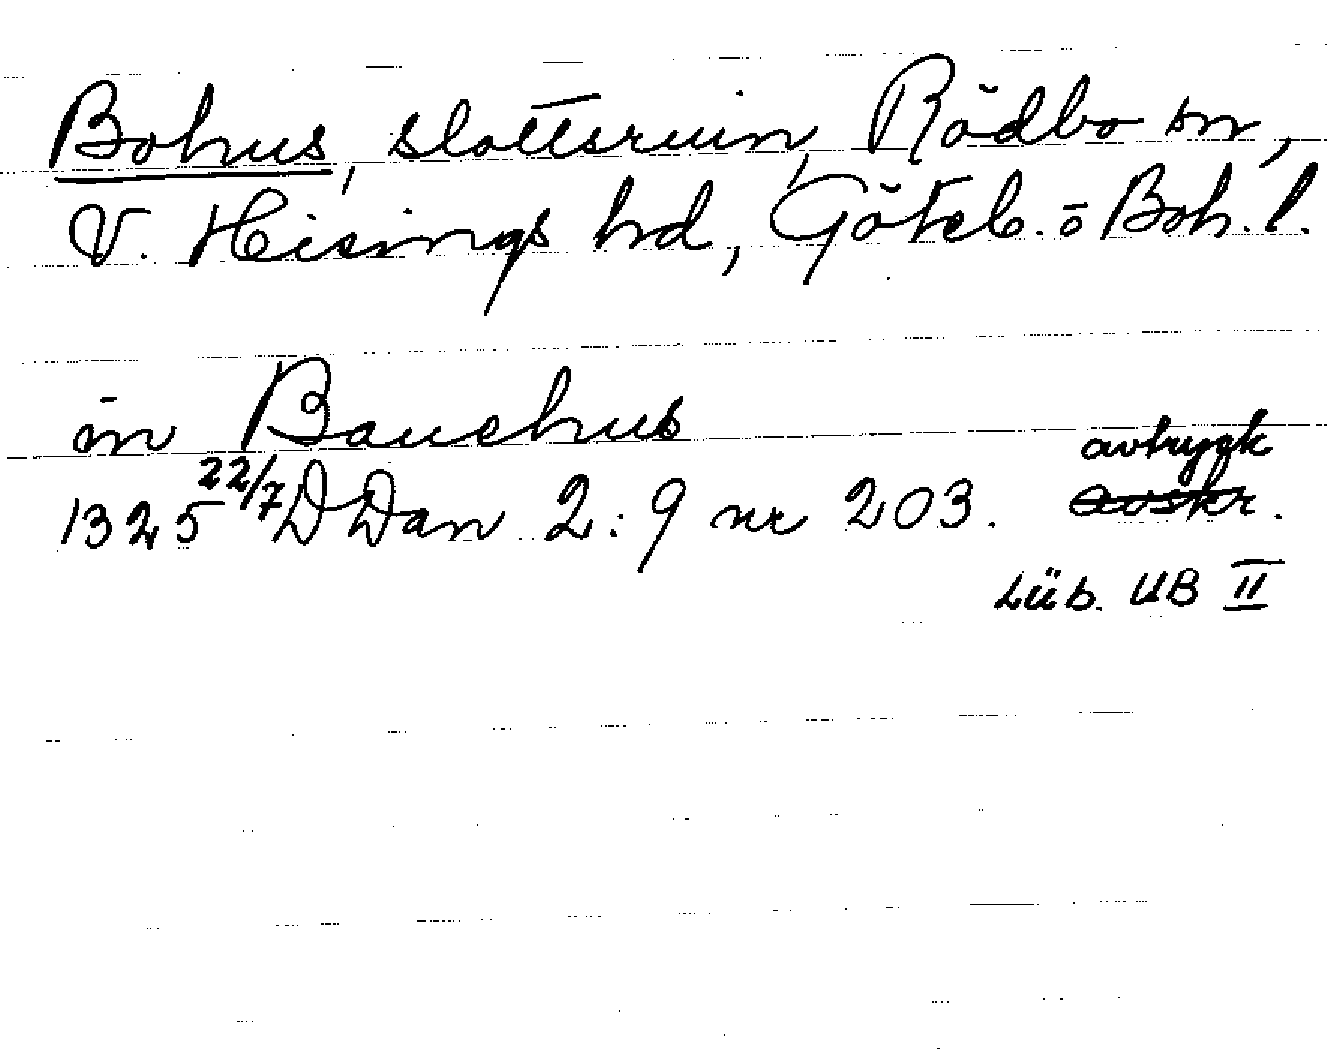 Bohus, slottsruin, Rödbo sn,
V. Hisings hd, Göteb. o Boh. l.
in Bauehus
1325 22/7 DDan 2:9 nr 203. avtryck
avskr.
Lüb. UB II